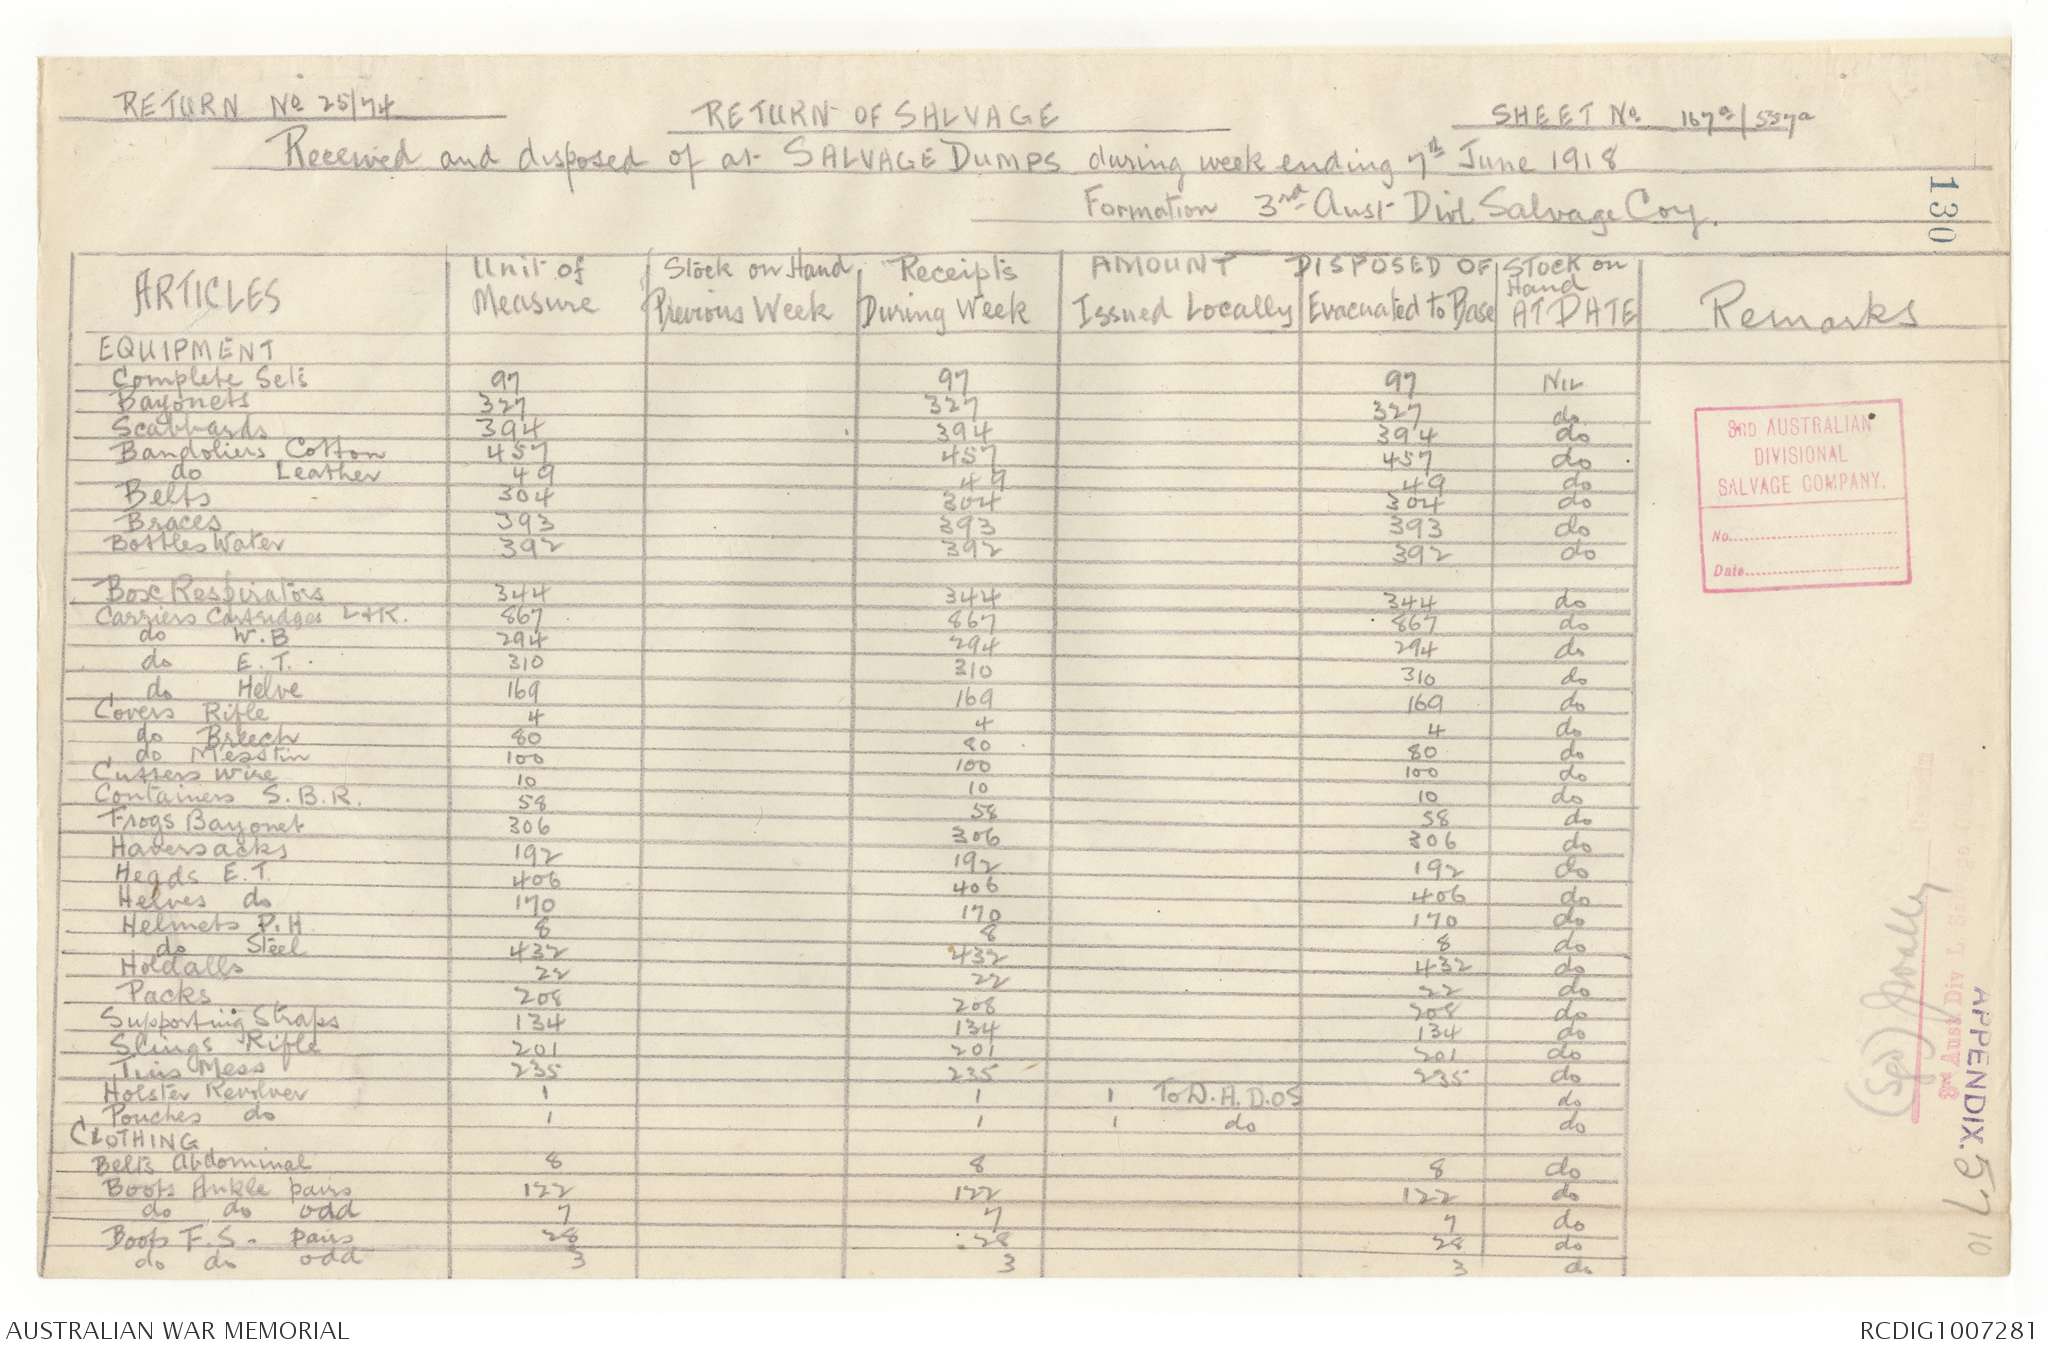 RETURN No 25/74 RETURN OF SALVAGE SHEET No 167a/557a
Received and disposed of at SALVAGE DUMPS during week ending 7th June 1918
Formation 3rd Aust Divl Salvage Coy.
130
ARTICLES Unit of Measure Stock on Hand Previous Week Receipts During Week AMOUNT Issued Locally DISPOSED OF Evacuated to Base Stock on Hand AT DATE Remarks
EQUIPMENT
Complete Sets 97 97 97 NIL
Bayonets 327 327 327 do
Scabbards 394 394 394 do
Bandoliers Cotton 457 457 457 do
do Leather 49 49 49 do
Belts 304 304 304 do
Braces 393 393 393 do
Bottles Water 392 392 392 do
Box Respirators 344 344 344 do
Carriers Cartridges L&R. 867 867 867 do
do W.B 294 294 294 do
do E.T. 310 310 310 do
do Helve 169 169 169 do
Covers Rifle 4 4 4 do
do Breech 80 80 80 do
do Messtin 100 100 100 do
Cutters Wire 10 10 10 do
Containers S.B.R. 58 58 58 do
Frogs Bayonet 306 306 306 do
Haversacks 192 192 192 do
Heads E.T. 406 406 406 do
Helves do 170 170 170 do
Helmets P.H 8 8 8 do
do Steel 432 432 432 do
Holdalls 22 22 22 do
Packs 208 208 208 do
Supporting Straps 134 134 134 do
Slings Rifle 201 201 201 do
Tins Mess 235 235 235 do
Holster Revolver 1 1 1 To D.A.D.OS do
Pouches do 1 1 1 do do
CLOTHING
Belts Abdominal 8 8 8 do
Boots Ankle pairs 122 122 122 do
do do odd 7 7 7 do
Boots F.S. pairs 28 28 28 do
do do odd 3 3 3 do
3RD AUSTRALIAN
DIVISIONAL
SALVAGE COMPANY.
No.
Date
(Sgd)
3rd Aust Div
APPENDIX. 57
10
AUSTRALIAN WAR MEMORIAL RCDIG1007281